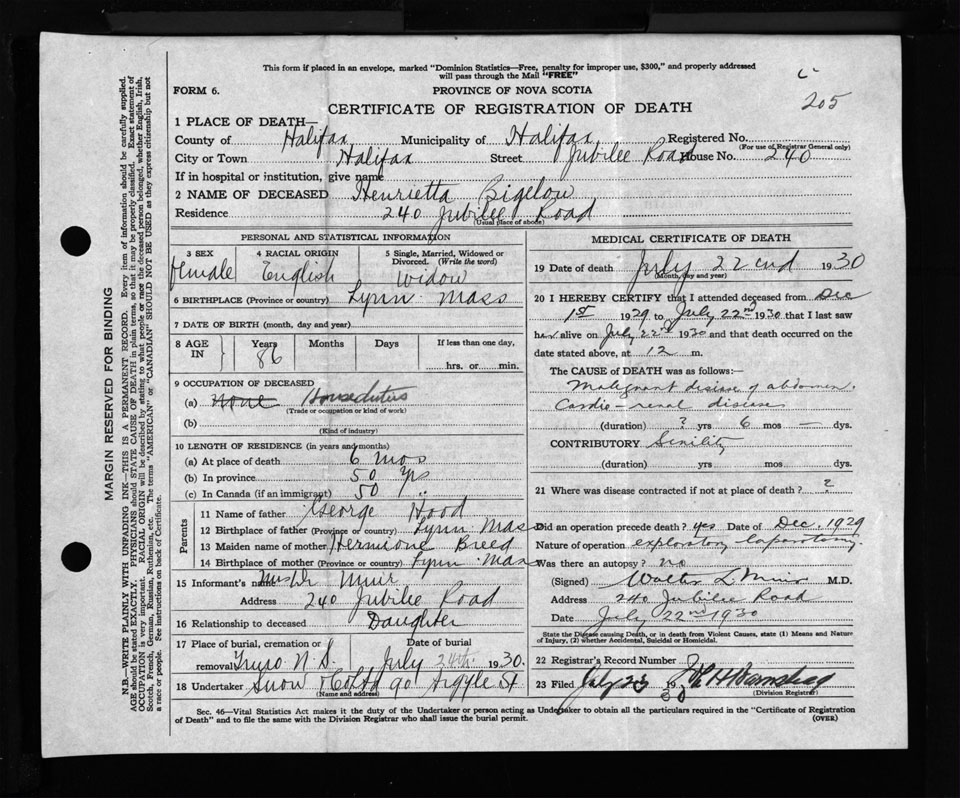 This form if placed in an envelope, marked "Dominion Statistics—Free, penalty for improper use, $300," and properly addressed
will pass through the Mail "FREE"
205
FORM 6.
PROVINCE OF NOVA SCOTIA
CERTIFICATE OF REGISTRATION OF DEATH
1 PLACE OF DEATH—
County of Halifax Municipality of Halifax Registered No.
(For use of Registrar General only)
City or Town Halifax Street Jubilee Road House No. 240
If in hospital or institution, give name
2 NAME OF DECEASED Henrietta Bigelow
Residence 240 Jubilee Road
(Usual place of abode)
PERSONAL AND STATISTICAL INFORMATION
3 SEX female
4 RACIAL ORIGIN English
5 Single, Married, Widowed or Divorced. (Write the word) Widow
6 BIRTHPLACE (Province or country) Lynn Mass
7 DATE OF BIRTH (month, day and year)
8 AGE IN Years 86 Months Days If less than one day,
hrs. or min.
9 OCCUPATION OF DECEASED
(a) None Houseduties
(Trade or occupation or kind of work)
(b)
(Kind of industry)
10 LENGTH OF RESIDENCE (in years and months)
(a) At place of death 6 mos
(b) In province 50 yrs
(c) In Canada (if an immigrant) 50 "
Parents
11 Name of father George Hood
12 Birthplace of father (Province or country) Lynn Mass
13 Maiden name of mother Hermione Breed
14 Birthplace of mother (Province or country) Lynn Mass
15 Informant's name Muir
Address 240 Jubilee Road
16 Relationship to deceased Daughter
17 Place of burial, cremation or removal Truro N.S. Date of burial July 24th 1930.
18 Undertaker Snow & Co Ltd 90 Argyle St
(Name and address)
MEDICAL CERTIFICATE OF DEATH
19 Date of death July 22nd 1930
(Month, day and year)
20 I HEREBY CERTIFY that I attended deceased from Dec
1st 1929 to July 22nd 1930 that I last saw
her alive on July 22nd 1930 and that death occurred on
date stated above, at 12 m.
The CAUSE of DEATH was as follows:—
Malignant disease of abdomen.
Cardio-renal disease
(duration) ? yrs 6 mos — dys.
CONTRIBUTORY Senility
(duration) yrs mos dys.
21 Where was disease contracted if not at place of death? ?
Did an operation precede death? yes Date of Dec. 1929
Nature of operation exploratory laparotomy.
Was there an autopsy? no
(Signed) Walter L Muir M.D.
Address 240 Jubilee Road
Date July 22nd 1930
State the Disease causing Death, or in death from Violent Causes, state (1) Means and Nature
of Injury, (2) whether Accidental, Suicidal or Homicidal.
22 Registrar's Record Number
23 Filed July 23 1930
(Division Registrar)
Sec. 46—Vital Statistics Act makes it the duty of the Undertaker or person acting as Undertaker to obtain all the particulars required in the "Certificate of Registration
of Death" and to file the same with the Division Registrar who shall issue the burial permit.
(OVER)
MARGIN RESERVED FOR BINDING
N.B.—WRITE PLAINLY WITH UNFADING INK—THIS IS A PERMANENT RECORD. Every item of information should be carefully supplied.
AGE should be stated EXACTLY. PHYSICIANS should STATE CAUSE OF DEATH in plain terms, so that it may be properly classified. Exact statement of
OCCUPATION is very important. RACIAL ORIGIN will be described by stating to what people or race the deceased person belonged, whether English, Irish,
Scotch, French, German, Russian, Ruthenian, etc. The terms "AMERICAN" or "CANADIAN" SHOULD NOT BE USED as they express citizenship but not
a race or people. See instructions on back of Certificate.